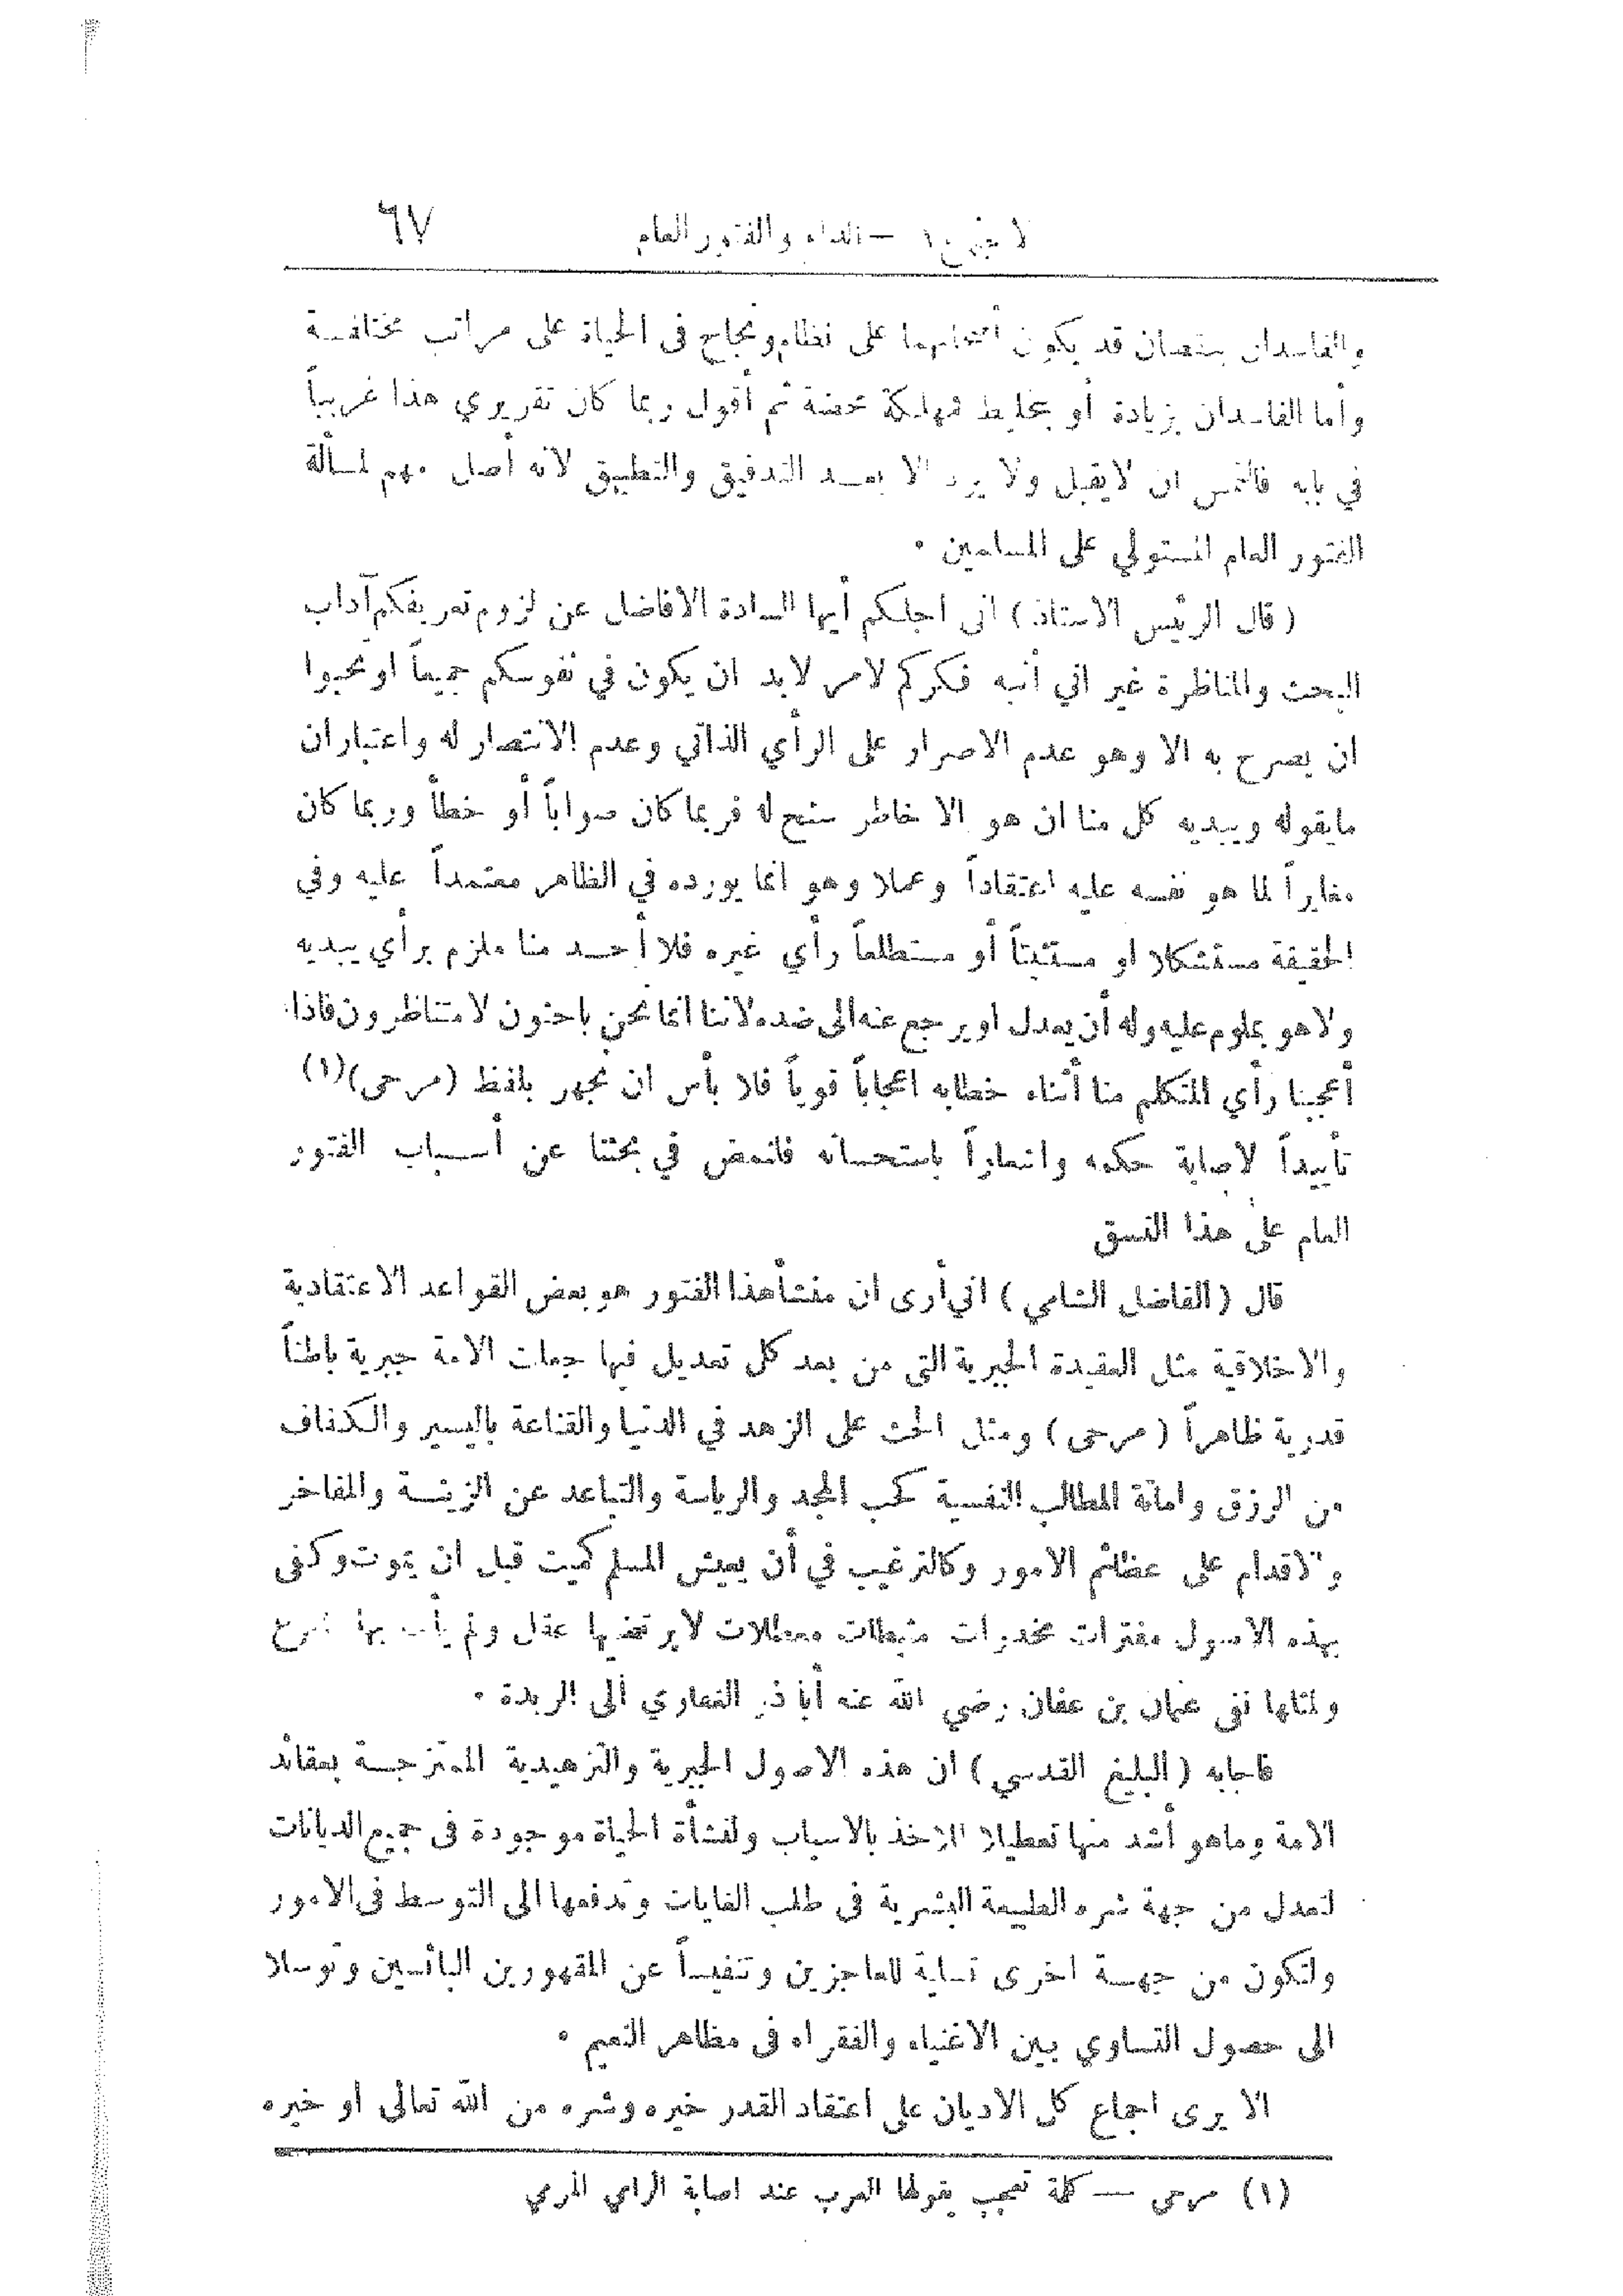 الاجتماع ١ — الداء والفتور العام ٦٧
والفاسدان بنقصان قد يكون أهلهما على نظام ونجاح فى الحياة على مراتب مختلفة
وأما الفاسدان بزيادة أو بتخليط فهلكة محضة ثم أقول ربما كان تقريري هذا غريباً
في بابه فالتمس ان لايقبل ولا يرد الا بعد التدقيق والتطبيق لانه أصل مهم لمسألة
الفتور العام المستولي على المسلمين .
( قال الرئيس الاستاذ ) انى اجلكم أيها السادة الافاضل عن لزوم تعريفكم آداب
البحث والمناظرة غير اني أنبه فكركم لامر لابد ان يكون في نفوسكم جميعاً او تحبوا
ان يصرح به الا وهو عدم الاصرار على الرأي الذاتي وعدم الانتصار له واعتبار ان
مايقوله ويبديه كل منا ان هو الا خاطر سنح له فربما كان صواباً أو خطأ وربما كان
مغايراً لما هو نفسه عليه اعتقاداً وعملا وهو انما يورده في الظاهر معتمداً عليه وفي
الحقيقة مستشكلا او مستثبتاً أو مستطلعاً رأي غيره فلا أحد منا ملزم برأي يبديه
ولاهو بملوم عليه وله أن يعدل او يرجع عنه الى ضده لاننا انما نحن باحثون لا متناظرون فاذا
أعجبنا رأي المتكلم منا أثناء خطابه اعجاباً قوياً فلا بأس ان نجهر بلفظ (مرحى)(١)
تأييداً لاصابة حكمه واشعاراً باستحسانه فلنمض في بحثنا عن أسباب الفتور
العام على هذا النسق
قال ( الفاضل الشامي ) اني أرى ان منشأ هذا الفتور هو بعض القواعد الاعتقادية
والاخلاقية مثل العقيدة الجبرية التى من بعد كل تعديل فيها جعلت الامة جبرية باطناً
قدرية ظاهراً ( مرحى ) ومثل الحث على الزهد في الدنيا والقناعة باليسير والكفاف
من الرزق واماتة المطالب النفسية كحب المجد والرياسة والتباعد عن الزينة والمفاخر
والاقدام على عظائم الامور وكالترغيب في أن يعيش المسلم كميت قبل ان يموت وكفى
بهذه الاصول مفترات مخدرات مثبطات معطلات لايرتضيها عقل ولم يأت بها شرع
ولمثلها نفى عثمان بن عفان رضي الله عنه أبا ذر الغفاري الى الربدة .
فاجابه ( البليغ القدسي ) ان هذه الاصول الجبرية والتزهيدية الممتزجة بعقائد
الامة وماهو أشد منها تعطيلا للاخذ بالاسباب ولنشأة الحياة موجودة فى جميع الديانات
لتعدل من جهة شره الطبيعة البشرية فى طلب الغايات وتدفعها الى التوسط فى الامور
ولتكون من جهة اخرى تسلية للعاجزين وتنفيساً عن المقهورين البائسين وتوسلا
الى حصول التساوي بين الاغنياء والفقراء فى مظاهر النعيم .
الا يرى اجماع كل الاديان على اعتقاد القدر خيره وشره من الله تعالى أو خيره
(١) مرحى — كلمة تعجب يقولها العرب عند اصابة الرامي المرمي